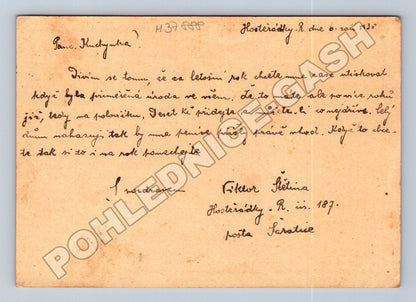 H37888
Hostěrádky, R. dne 6. 1935
Pane Kuchynka!
Divím se tomu, že za letošní rok chcete mne zase utiskovat
když byla průměrná úroda ve všem. Je to málo ale po více roků
již, tedy na polovičku. Deset kč přidejte a můžete-li co nejdříve. Celý
dům nahazuji tak by mne peníze právě vhod. Když to chce-
te tak si to i na rok ponechejte.
S pozdravem Viktor Štětina
Hostěrádky - R. čís. 187.
pošta Šaratice
POHLEDNICE GASH